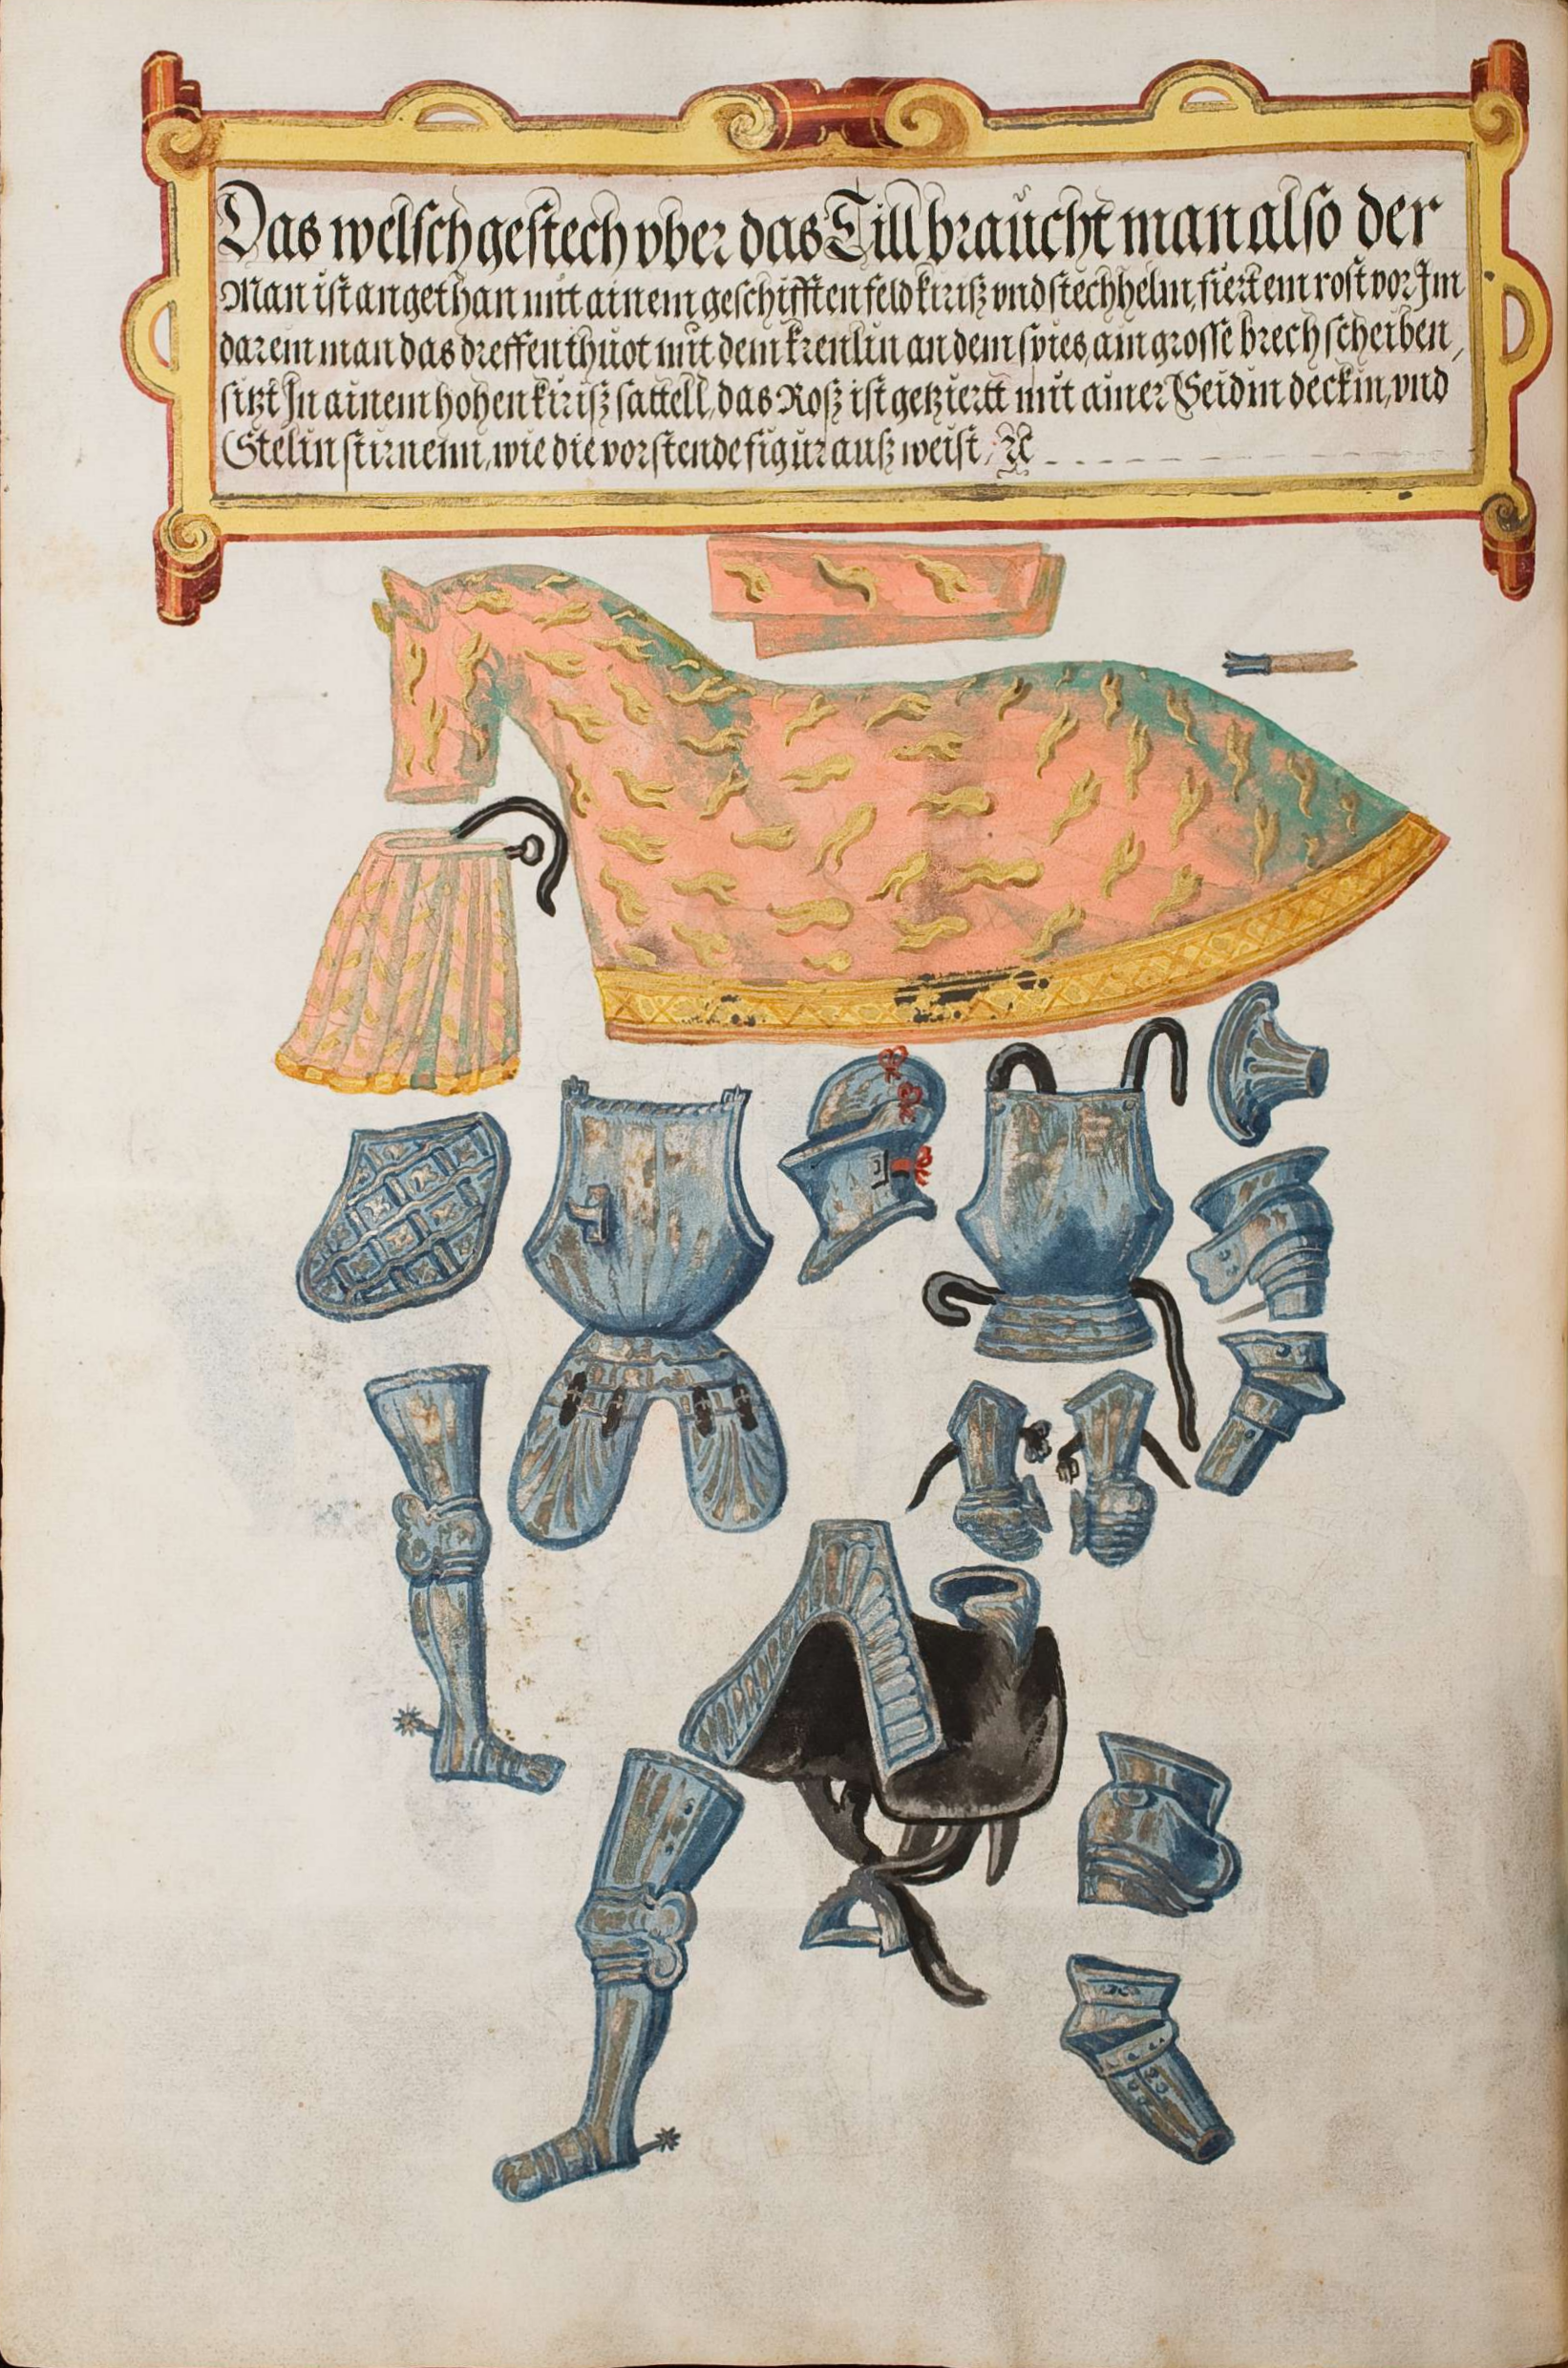 Das welsch gestech vber das Till braucht man also der
Man ist angethan mit ainem geschifften feld kiriß vnd stechhelm, fiert ein rost vor Im
darein man das dreffen thuot mit dem krenlin an dem spies, ain grosse brech scheiben,
sitzt In ainem hohen kiriß sattell, das Roß ist getziertt mit ainer Seidin deckin, vnd
Stelin stirnenn, wie die vorstende figur auß weist,